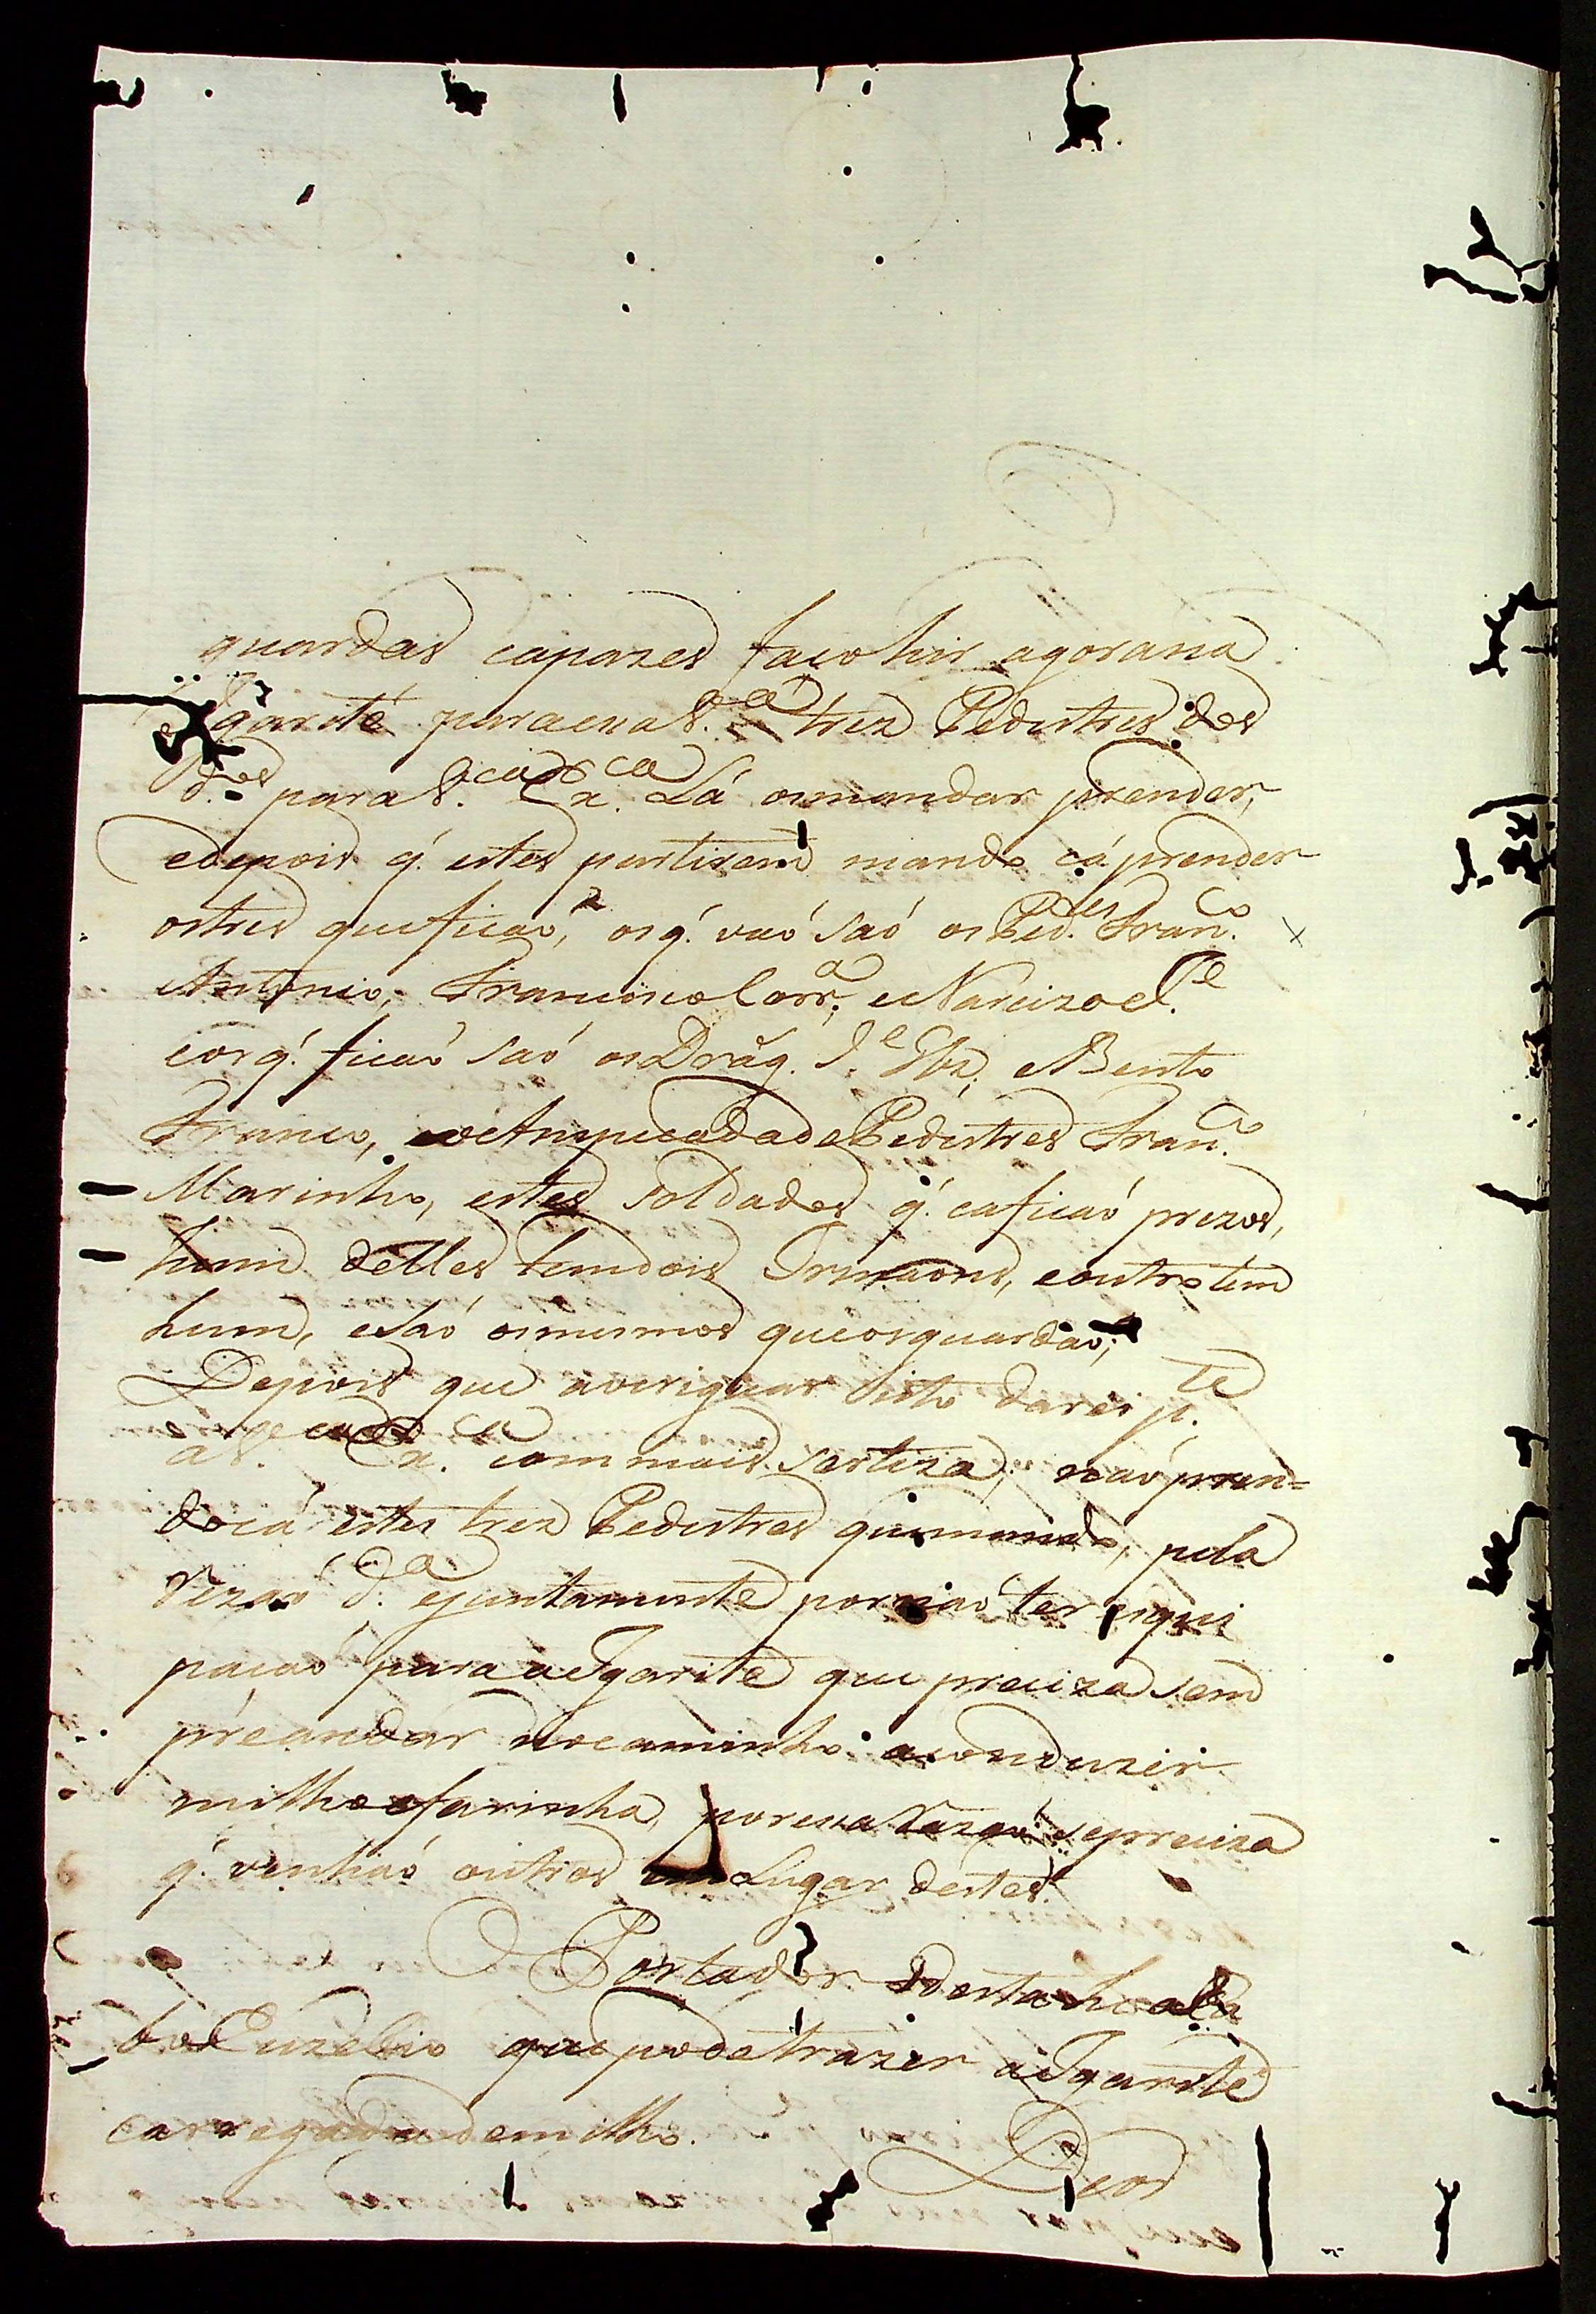 guardas capazes faço hir agora na
Igarité para essa trez Pedestres dos
d.os para V. Ex.ca Lá os mandar prender,
e depois q. estes partirem mando cá prender
os tres que ficaó, os q. vaó saó os Ped.es Fran.co
Antonio, Francisco Corr.a, e Narcizo
e os q. ficaó saó os Drag. e Bento
Franco, e o Anspecada de Pedestres Fran.co
Marinho, estes soldados q. ca ficaó prezos,
hum delles tem dois Irmaons, e outro tem
hum, e saó os mesmos que os guardaó;
Depois que averiguar isto darei p.te
a V. Ex.ca com mais serteza; naó pren=
do cá estes trez Pedestres que mando, pela
rezaó d.a e juntamente por naó ter aqui
para a Igarité que preciza sem
pre andar no caminho a conduzir
milho e farinha, por essa razaó se preciza
q. venhaó outros em Lugar destes.
O Portador desta he o Ca
bo Euzebio que pode trazer a Igarité
carregada de milho.
Deos